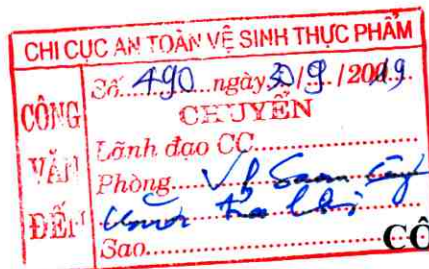 CHI CỤC AN TOÀN VỆ SINH THỰC PHẨM
CÔNG VĂN ĐẾN
Số 490 ngày 30/9/2019
CHUYỂN
Lãnh đạo CC
Phòng VP
Sao
CÔ